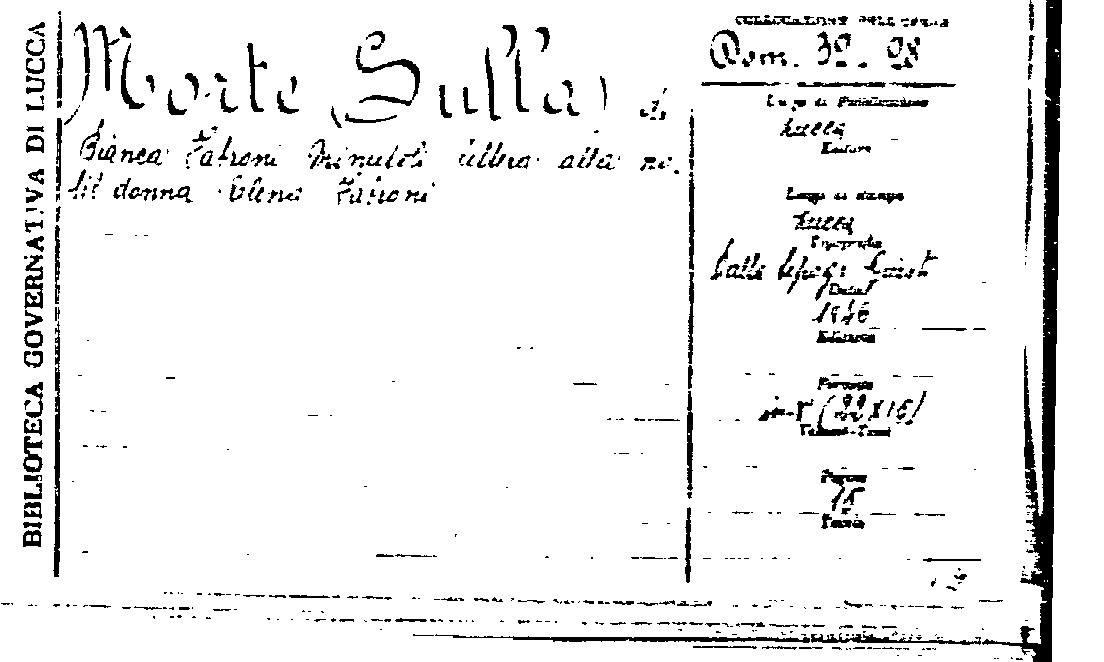 BIBLIOTECA GOVERNATIVA DI LUCCA
Morte (Sulla) di
Bianca Fatroni Minutoli lettera alla no-
bil donna Elena Fatroni
COLLOCAZIONE DELL'OPERA
Dom. 32. 28
Luogo di Pubblicazione
Lucca
Editore
Luogo di stampa
Lucca
Tipografia
Dalla tipogr. Giusti
Data
1846
Edizione
Formato
in-8° (22x15)
Volume-Tomi
Pagine
15
Tavole